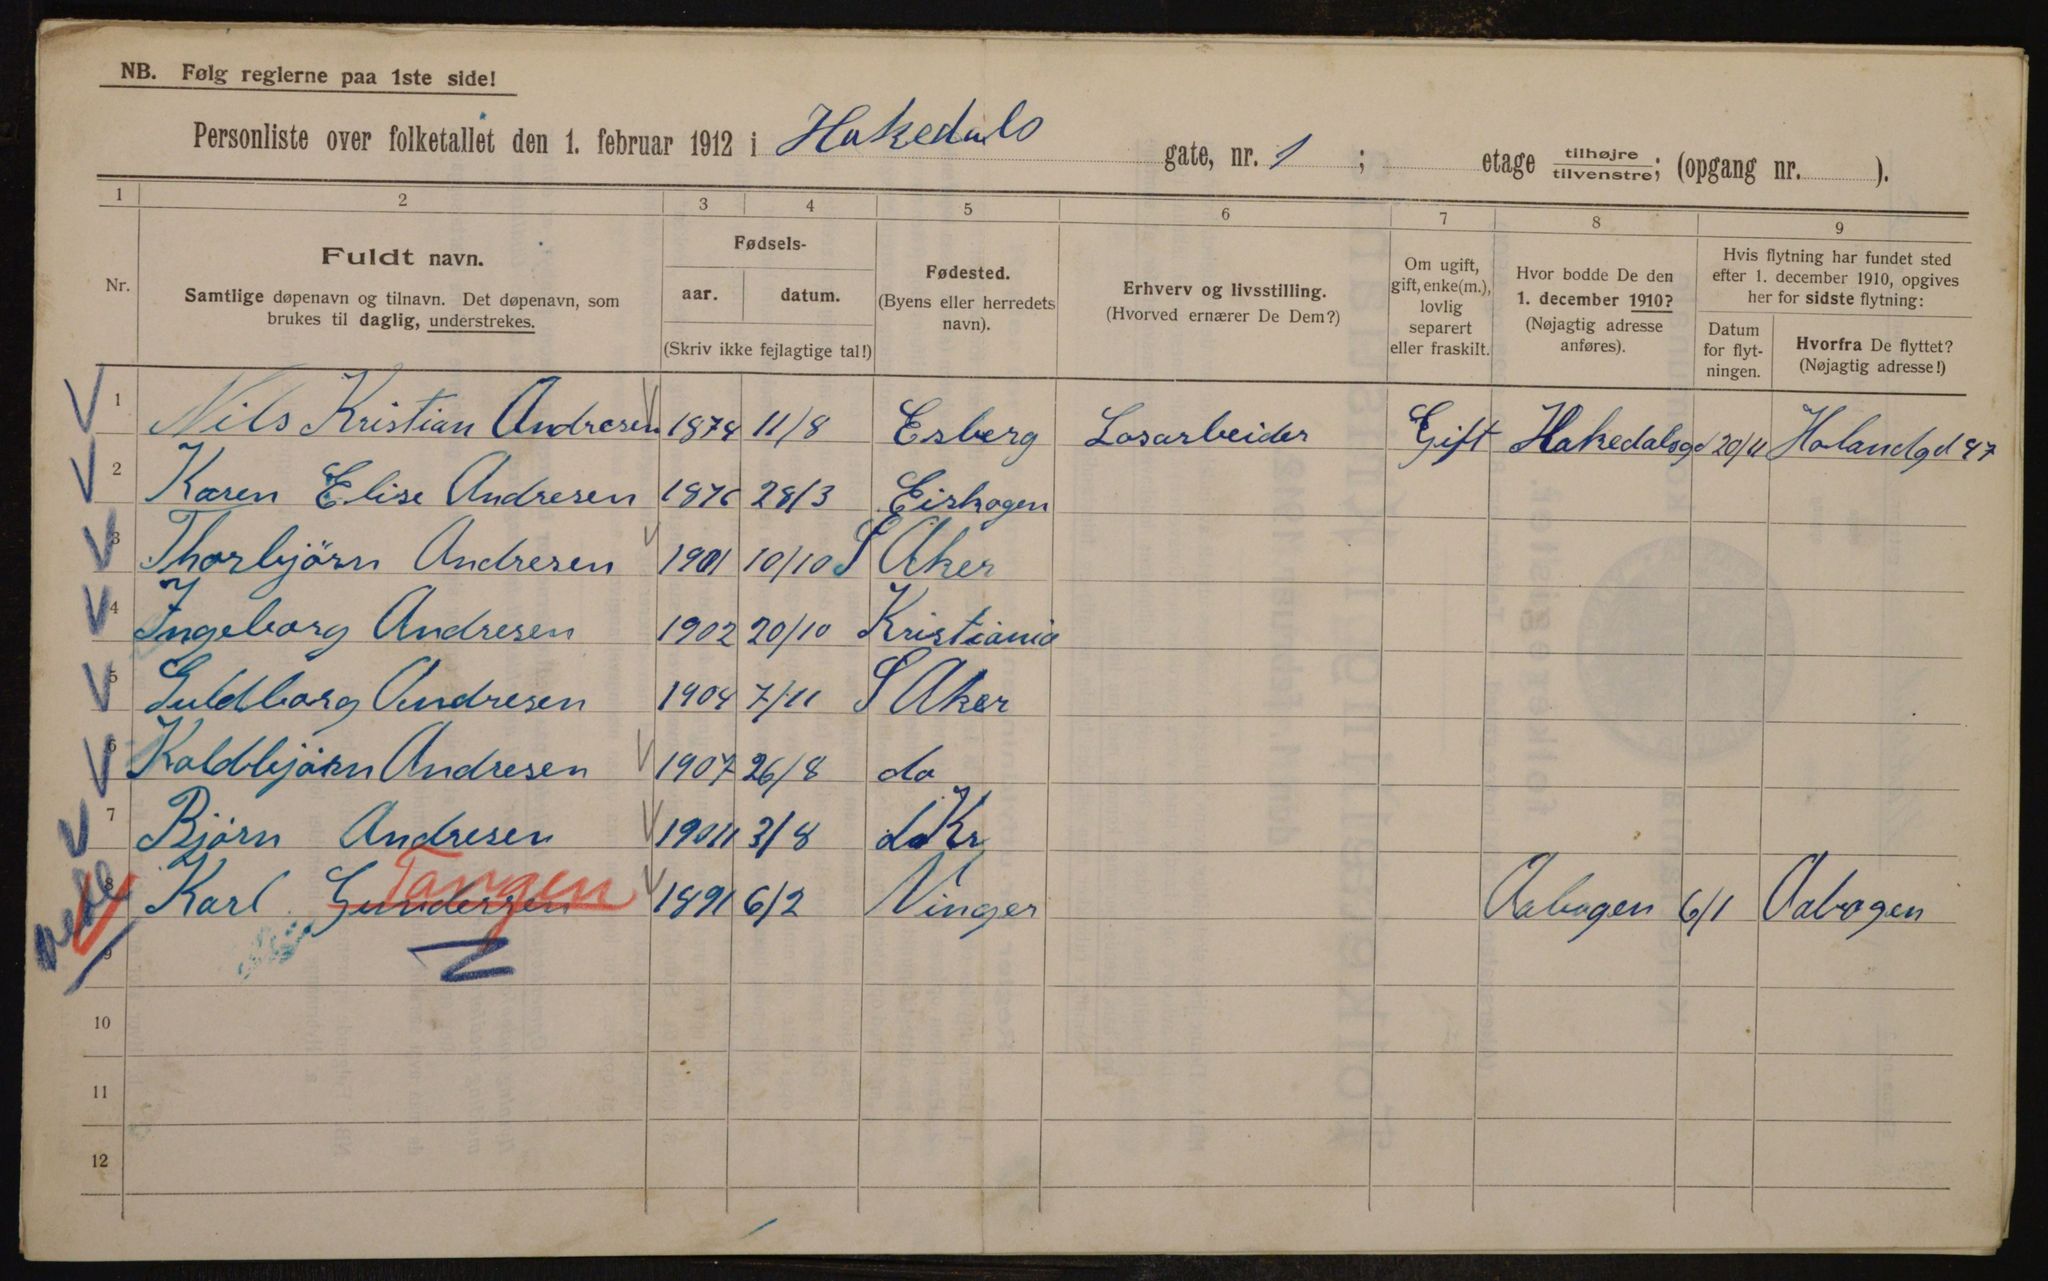 NB. Følg reglerne paa 1ste side!
Personliste over folketallet den 1. februar 1912 i Hakedals gate, nr. 1 ; etage tilhøjre tilvenstre; (opgang nr. ).
1 2 3 4 5 6 7 8 9
Nr.
Fuldt navn.
Samtlige døpenavn og tilnavn. Det døpenavn, som
brukes til daglig, understrekes.
Fødsels-
aar. datum.
(Skriv ikke fejlagtige tal!)
Fødested.
(Byens eller herredets
navn).
Erhverv og livsstilling.
(Hvorved ernærer De Dem?)
Om ugift,
gift, enke(m.),
lovlig
separert
eller fraskilt.
Hvor bodde De den
1. december 1910?
(Nøjagtig adresse
anføres).
Hvis flytning har fundet sted
efter 1. december 1910, opgives
her for sidste flytning:
Datum
for flyt-
ningen.
Hvorfra De flyttet?
(Nøjagtig adresse!)
1 Nils Kristian Andresen 1878 11/8 Esberg Losarbeider Gift Hakedalsgd 20/11 Holandgd 47
2 Karen Elise Andresen 1876 28/3 Eiskogen
3 Thorbjörn Andresen 1901 10/10 S Aker
4 Ingeborg Andresen 1902 20/10 Kristiania
5 Guldborg Andresen 1904 7/11 S Aker
6 Koldbjörn Andresen 1907 26/8 do
7 Bjørn Andresen 1911 3/8 do Kr
8 Karl Gundersen Tangen 1891 6/2 Vinger Aabogen 6/1 Aabogen
9
10
11
12